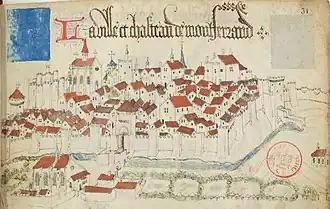 La ville et chasteau de monferrand
31